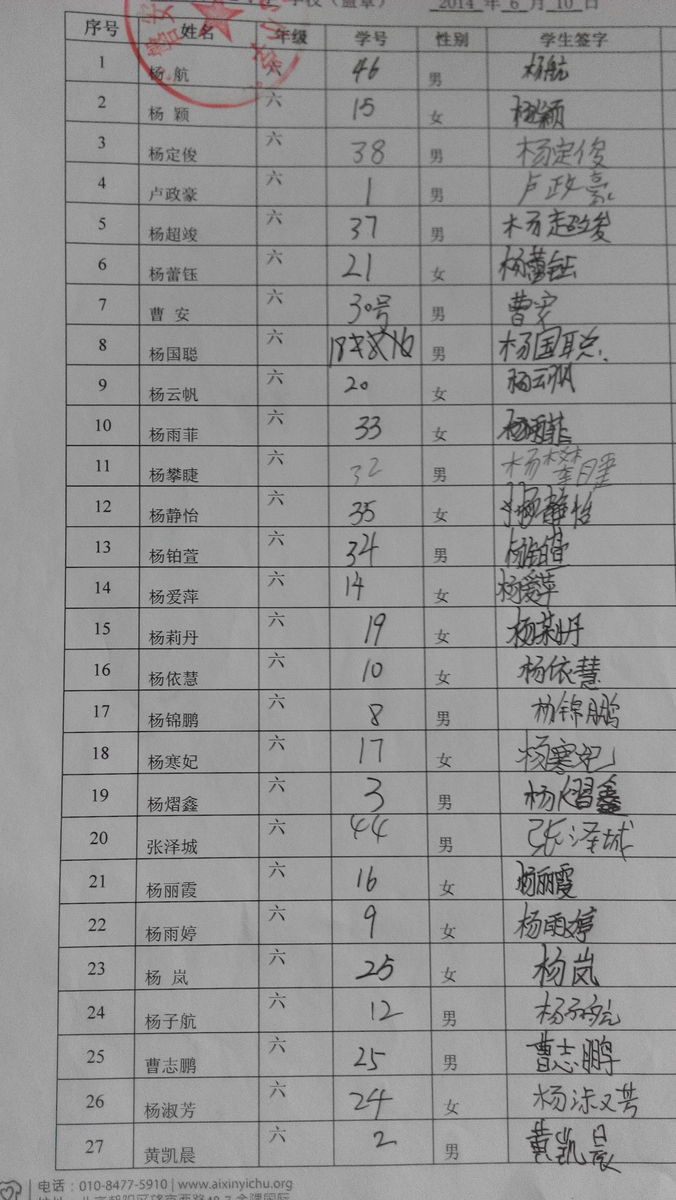 学校（盖章） 2014 年 6 月 10 日
序号 姓名 年级 学号 性别 学生签字
1 杨 航 六 46 男 杨航
2 杨 颖 六 15 女 杨颖
3 杨定俊 六 38 男 杨定俊
4 卢政豪 六 1 男 卢政豪
5 杨超竣 六 37 男 杨超竣
6 杨蕾钰 六 21 女 杨蕾钰
7 曹 安 六 30号 男 曹安
8 杨国聪 六 18 男 杨国聪
9 杨云帆 六 20 女 杨云帆
10 杨雨菲 六 33 女 杨雨菲
11 杨攀睫 六 32 男 杨攀睫
12 杨静怡 六 35 女 杨静怡
13 杨铂萱 六 34 男 杨铂萱
14 杨爱萍 六 14 女 杨爱萍
15 杨莉丹 六 19 女 杨莉丹
16 杨依慧 六 10 女 杨依慧
17 杨锦鹏 六 8 男 杨锦鹏
18 杨寒妃 六 17 女 杨寒妃
19 杨熠鑫 六 3 男 杨熠鑫
20 张泽城 六 44 男 张泽城
21 杨丽霞 六 16 女 杨丽霞
22 杨雨婷 六 9 女 杨雨婷
23 杨 岚 六 25 女 杨岚
24 杨子航 六 12 男 杨子航
25 曹志鹏 六 25 男 曹志鹏
26 杨淑芳 六 24 女 杨淑芳
27 黄凯晨 六 2 男 黄凯晨
电话：010-8477-5910 | www.aixinyichu.org